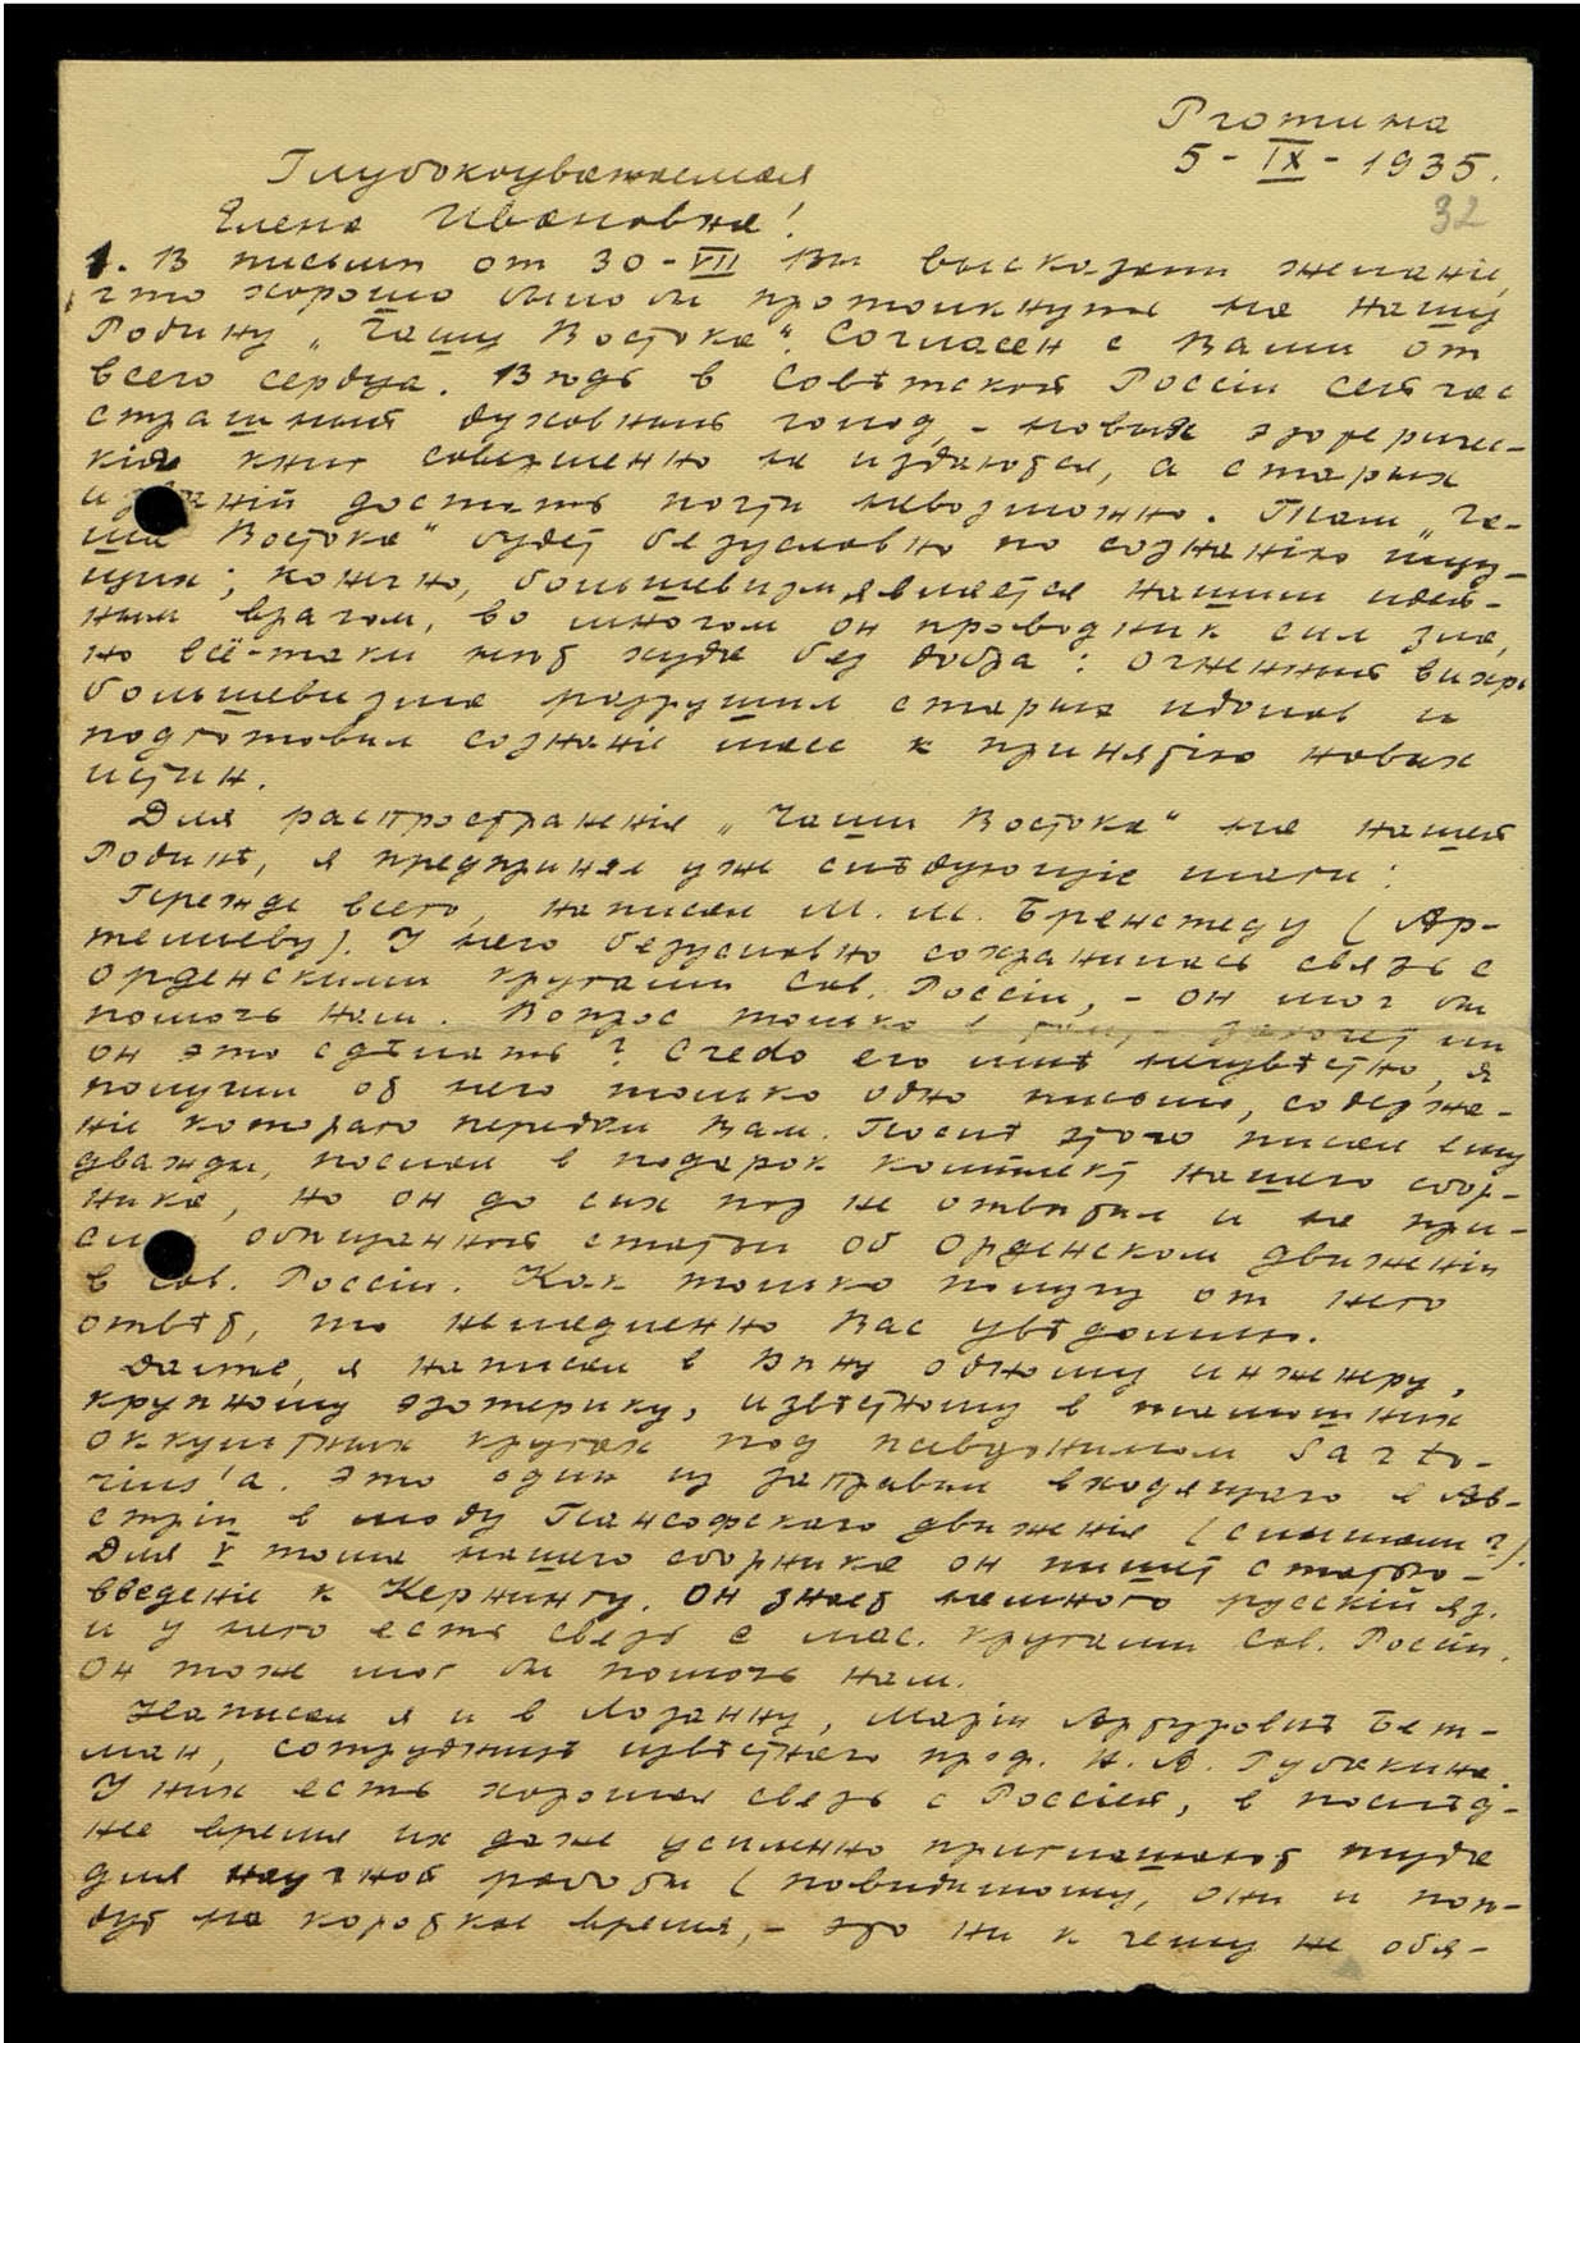 Рготина
5 - IX - 1935.
32
Глубокоуважаемая
Елена Ивановна!
1. В письмѣ от 30-VII Вы высказали желаніе,
что хорошо было бы протолкнуть на нашу
Родину „Чашу Востока“. Согласен с Вами от
всего сердца. Вѣдь в Совѣтской Россіи сейчас
страшный духовный голод, - новых эзотеричес-
ких книг совершенно не издаются, а старых
изданій достать почти невозможно. Там „Ча-
ша Востока“ будет безусловно по сознанію ищу-
щих; конечно, большевизм является нашим идей-
ным врагом, во многом он проводник сил зла,
но всё-таки нѣт худа без добра: огненный вихрь
большевизма разрушил старых идолов и
подготовил сознаніе масс к принятію новых
истин.
Для распространенія „Чаши Востока“ на нашей
Родинѣ, я предпринял уже слѣдующіе шаги:
Прежде всего, написал М. М. Бренстеду (Ар-
темьеву). У него безусловно сохранилась связь с
орденскими кругами Сов. Россіи, - он мог бы
помочь нам. Вопрос только в том, - захочет ли
он это сдѣлать? Credo его мнѣ неизвѣстно, я
получил от него только одно письмо, содержа-
ніе котораго передал Вам. Послѣ этого писал ему
дважды, послал в подарок комплект нашего сбор-
ника, но он до сих пор не отвѣтил и не при-
слал обѣщанной статьи об Орденском движеніи
в Сов. Россіи. Как только получу от него
отвѣт, то немедленно Вас увѣдомлю.
Далѣе, я написал в Вѣну одному инженеру,
крупному эзотерику, извѣстному в тамошних
оккультных кругах под псевдонимом Sarto-
rius'а. Это один из заправил входящаго в Ав-
стріи в моду Пансофскаго движенія (слыхали?).
Для V тома нашего сборника он пишет статью-
введеніе к Кернингу. Он знает немного русскій яз.
и у него есть связь с мас. кругами Сов. Россіи.
Он тоже мог бы помочь нам.
Написал я и в Лозанну, Маріи Артуровнѣ Бет-
ман, сотрудницѣ извѣстнаго проф. Н. А. Рубакина.
У них есть хорошая связь с Россіей, в послѣд-
нее время их даже усиленно приглашают туда
для научной работы (повидимому, они и поѣ-
дут на короткое время, - это ни к чему не обя-